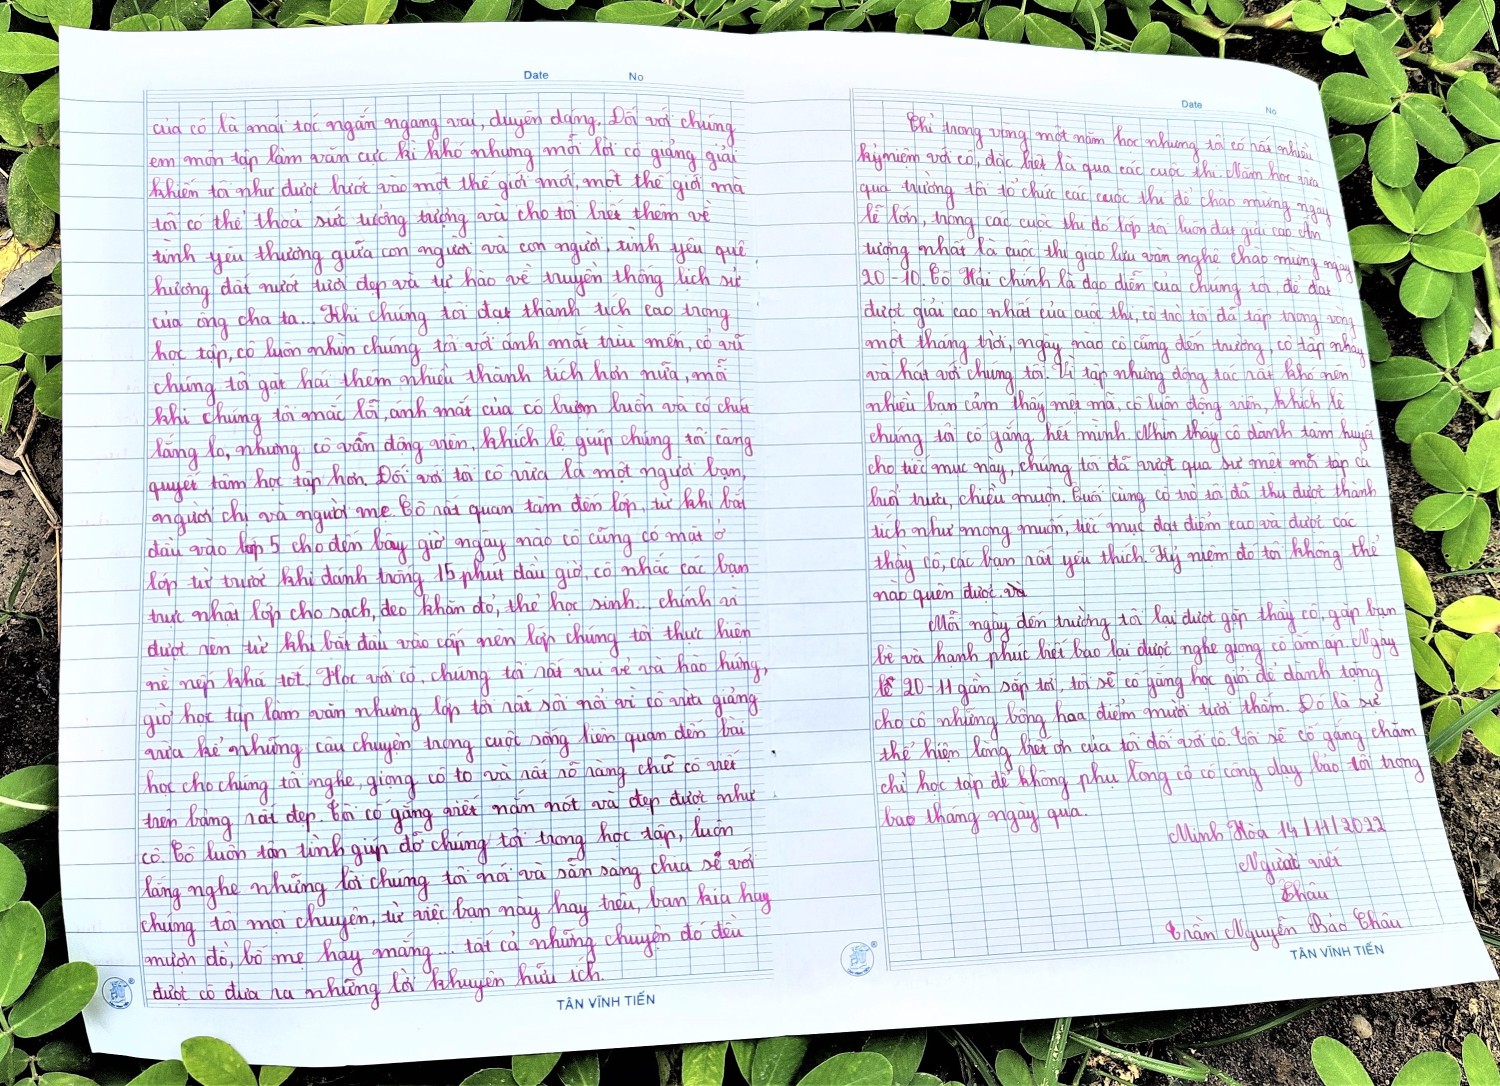 Date No
của cô là mái tóc ngắn ngang vai, duyên dáng. Đối với chúng
em môn tập làm văn cực kì khó nhưng mỗi lời cô giảng giải
khiến tôi như được bước vào một thế giới mới, một thế giới mà
tôi có thể thoả sức tưởng tượng và cho tôi biết thêm về
tình yêu thương giữa con người và con người, tình yêu quê
hương đất nước tươi đẹp và tự hào về truyền thống lịch sử
của ông cha ta... Khi chúng tôi đạt thành tích cao trong
học tập, cô luôn nhìn chúng tôi với ánh mắt trìu mến, cổ vũ
chúng tôi gặt hái thêm nhiều thành tích hơn nữa, mỗi
khi chúng tôi mắc lỗi, ánh mắt của cô buồn và có chút
lắng lo, nhưng cô vẫn động viên, khích lệ giúp chúng tôi càng
quyết tâm học tập hơn. Đối với tôi cô vừa là một người bạn,
người chị và người mẹ. Cô rất quan tâm đến lớp, từ khi bắt
đầu vào lớp 5 cho đến bây giờ ngày nào cô cũng có mặt ở
lớp từ trước khi đánh trống 15 phút đầu giờ, cô nhắc các bạn
trực nhật lớp cho sạch, đeo khăn đỏ, thẻ học sinh... chính vì
được rèn từ khi bắt đầu vào cấp nên lớp chúng tôi thực hiện
nề nếp khá tốt. Học với cô, chúng tôi rất vui vẻ và hào hứng,
giờ học tập làm văn nhưng lớp tôi rất sôi nổi vì cô vừa giảng
vừa kể những câu chuyện trong cuộc sống liên quan đến bài
học cho chúng tôi nghe, giọng cô to và rất rõ ràng chữ cô viết
trên bảng rất đẹp. Tôi cố gắng viết nắn nót và đẹp được như
cô. Cô luôn tận tình giúp đỡ chúng tôi trong học tập, luôn
lắng nghe những lời chúng tôi nói và sẵn sàng chia sẻ với
chúng tôi mọi chuyện, từ việc bạn này hay trêu, bạn kia hay
mượn đồ, bố mẹ hay mắng... tất cả những chuyện đó đều
được cô đưa ra những lời khuyên hữu ích.
TÂN VĨNH TIẾN
Date No
Chỉ trong vòng một năm học nhưng tôi có rất nhiều
kỷ niệm với cô, đặc biệt là qua các cuộc thi. Năm học vừa
qua trường tôi tổ chức các cuộc thi để chào mừng ngày
lễ lớn, trong các cuộc thi đó lớp tôi luôn đạt giải cao. Ấn
tượng nhất là cuộc thi giao lưu văn nghệ chào mừng ngày
20-10. Cô Hải chính là đạo diễn của chúng tôi, để đạt
được giải cao nhất của cuộc thi, cô trò tôi đã tập trong vòng
một tháng trời, ngày nào cô cũng đến trường, cô tập nhảy
và hát với chúng tôi. Vì tập những động tác rất khó nên
nhiều bạn cảm thấy mệt mã, cô luôn động viên, khích lệ
chúng tôi cố gắng hết mình. Nhìn thấy cô dành tâm huyết
cho tiếc mục này, chúng tôi đã vượt qua sự mệt mỏi tập cả
buổi trưa, chiều muộn. Cuối cùng cô trò tôi đã thu được thành
tích như mong muốn, tiếc mục đạt điểm cao và được các
thầy cô, các bạn rất yêu thích. Kỷ niệm đó tôi không thể
nào quên được.
Mỗi ngày đến trường tôi lại được gặp thầy cô, gặp bạn
bè và hạnh phúc biết bao lại được nghe giọng cô ấm áp. Ngày
lễ 20-11 gần sắp tới, tôi sẽ cố gắng học giỏi để dành tặng
cho cô những bông hoa điểm mười tươi thắm. Đó là sự
thể hiện lòng biết ơn của tôi đối với cô. Tôi sẽ cố gắng chăm
chỉ học tập để không phụ lòng cô có công dạy bảo tôi trong
bao tháng ngày qua.
Minh Hòa 14/11/2022
Người viết
Châu
Trần Nguyễn Bảo Châu
TÂN VĨNH TIẾN